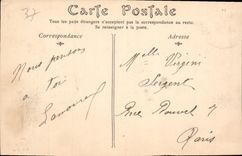 37
Carte Postale
Tous les pays étrangers n'acceptent pas la correspondance au recto.
Se renseigner à la poste.
Correspondance
Adresse
Nous pensons
a toi
Melle Virginie
Sergent
Rue
Paris